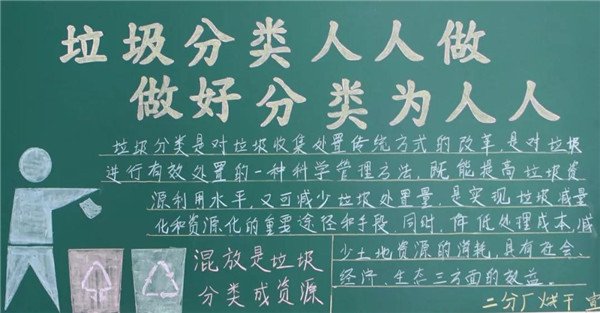 垃圾分类人人做
做好分类为人人
垃圾分类是对垃圾收集处置传统方式的改革,是对垃圾
进行有效处置的一种科学管理方法,既能提高垃圾资
源利用水平,又可减少垃圾处置量,是实现垃圾减量
化和资源化的重要途径和手段,同时,降低处理成本,减
少土地资源的消耗,具有社会、
经济、生态三方面的效益。
混放是垃圾
分类成资源
二分厂烘干